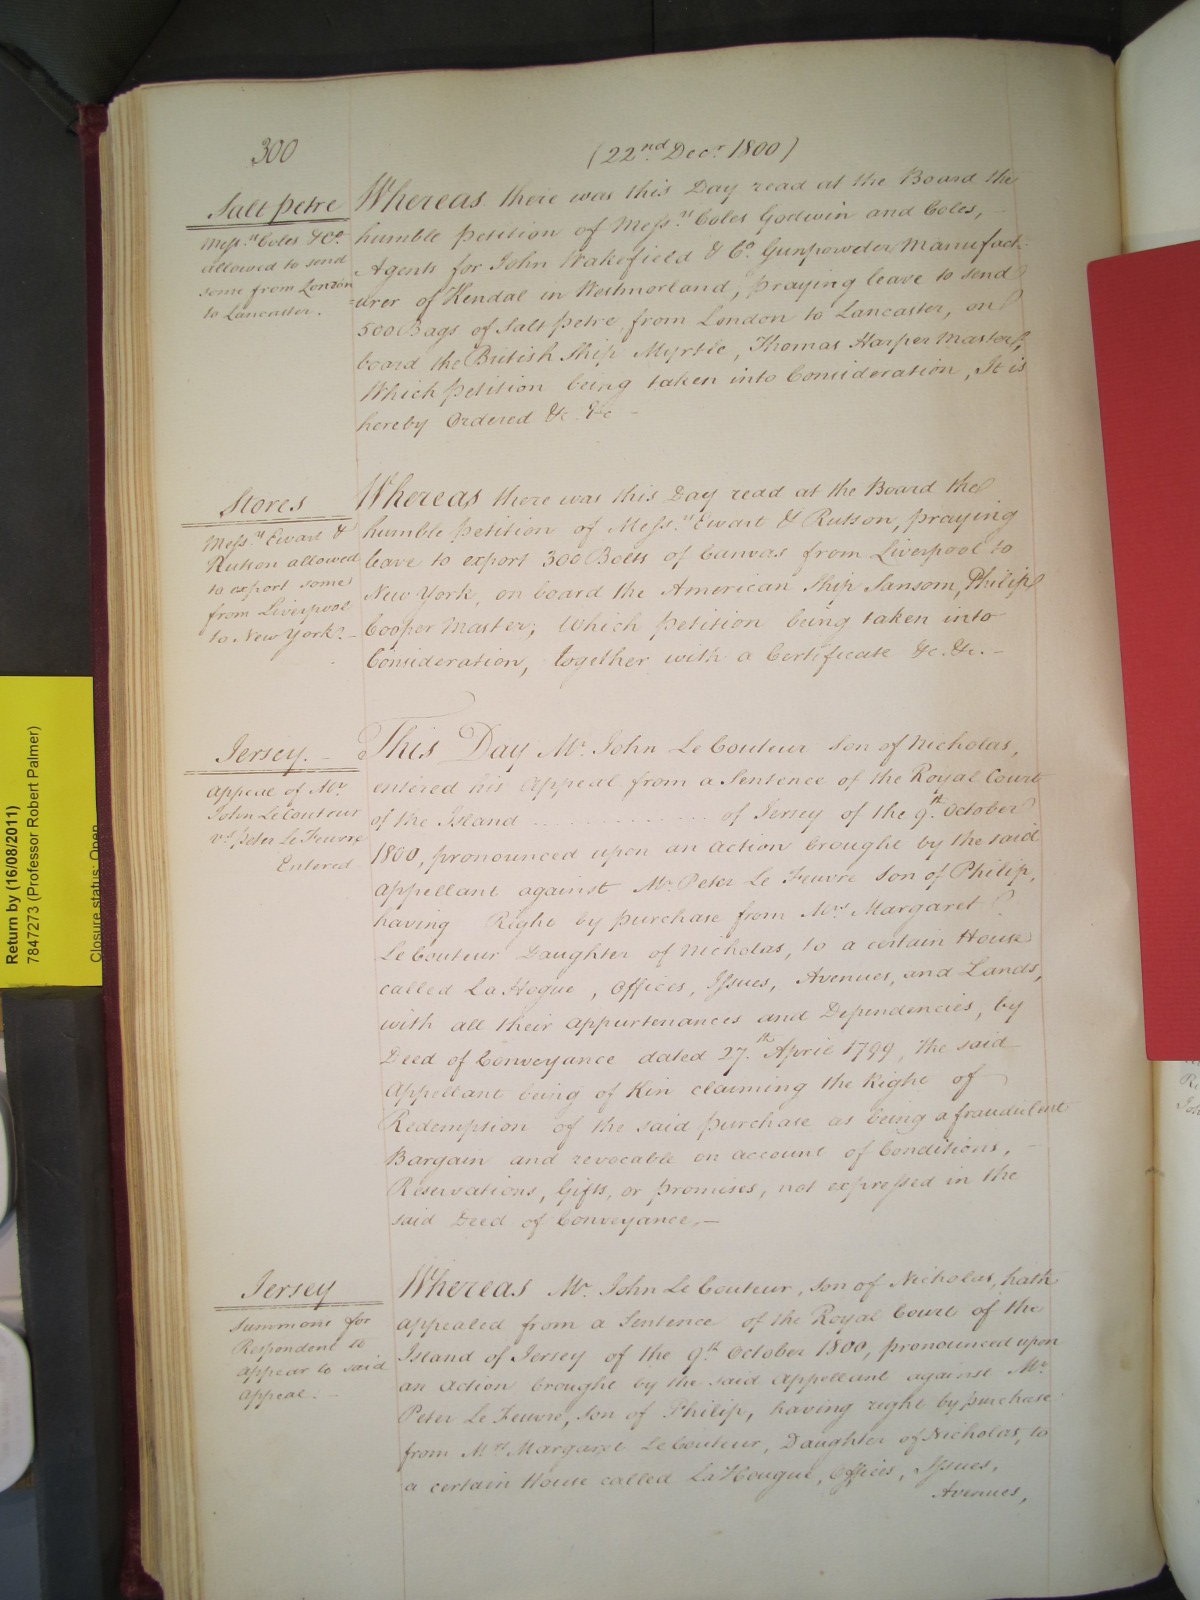 300
(22nd. Decr. 1800)
Salt petre
Messrs. Coles & Co.
allowed to send
some from London
to Lancaster.
Whereas there was this Day read at the Board the
humble Petition of Messrs. Coles Godwin and Coles,
Agents for John Wakefield & Co. Gunpowder Manufact-
-urer of Kendal in Westmorland, praying leave to send
500 Bags of Salt petre from London to Lancaster, on
board the British Ship Myrtle, Thomas Harper Master,
Which Petition being taken into Consideration, It is
hereby Ordered &c. &c -
Stores
Messrs. Ewart &
Rutson allowed
to export some
from Liverpool
to New York. -
Whereas there was this Day read at the Board the
humble Petition of Messrs. Ewart & Rutson, praying
leave to export 300 Bolts of Canvas from Liverpool to
New York, on board the American Ship Sansom, Philip
Cooper Master; Which Petition being taken into
Consideration, together with a Certificate &c. &c. -
Jersey. -
Appeal of Mr.
John Le Couteur
vs. Peter Le Feuvre
Entered
This Day Mr. John Le Couteur Son of Nicholas,
entered his Appeal from a Sentence of the Royal Court
of the Island . . . . . . . . . . . of Jersey of the 9th. October
1800, pronounced upon an Action brought by the said
Appellant against Mr. Peter Le Feuvre Son of Philip,
having Right by purchase from Mrs Margaret
Le Couteur Daughter of Nicholas, to a certain House
called La Hogue, Offices, Issues, Avenues, and Lands,
with all their appurtenances and Dependencies, by
Deed of Conveyance dated 27th. April 1799, the said
Appellant being of Kin claiming the Right of
Redemption of the said purchase as being a fraudulent
Bargain and revocable on account of Conditions, -
Reservations, Gifts, or promises, not expressed in the
said Deed of Conveyance. -
Jersey
Summons for
Respondent to
appear to said
Appeal. -
Whereas Mr. John Le Couteur, Son of Nicholas, hath
appealed from a Sentence of the Royal Court of the
Island of Jersey of the 9th. October 1800, pronounced upon
an Action brought by the said Appellant against Mr.
Peter Le Feuvre, Son of Philip, having right by purchase
from Mrs. Margaret Le Couteur, Daughter of Nicholas, to
a certain House called La Hougue, Offices, Issues,
Avenues,
Return by (16/08/2011)
7847273 (Professor Robert Palmer)
Closure status: Open